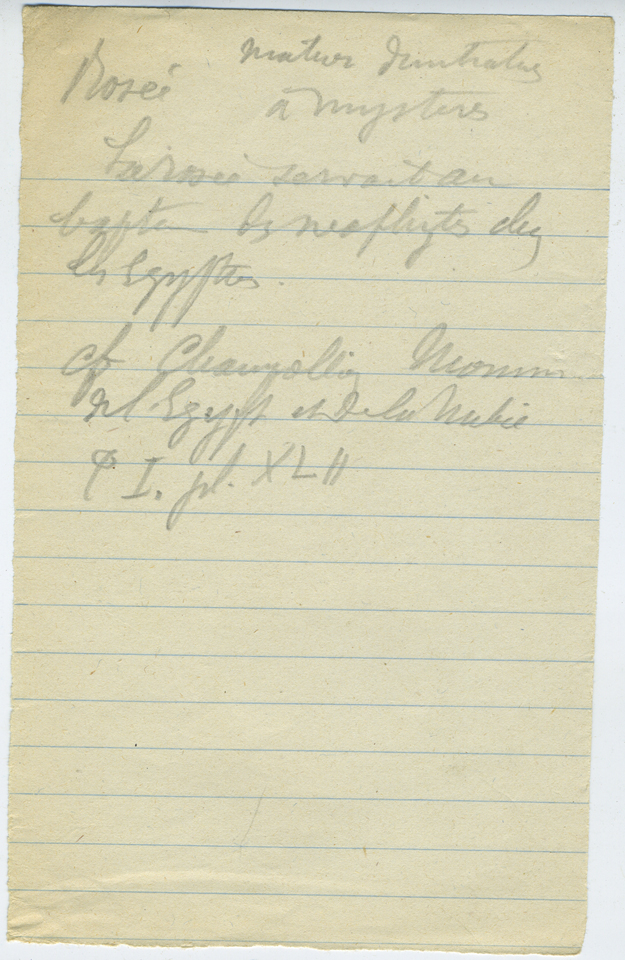 Rosée matière d'initiation
à mystères
La rosée servait au
baptême des néophytes chez
les Egyptiens.
cf Champollion Monum.
de l'Egypte et de la Nubie
T I. pl. XLII